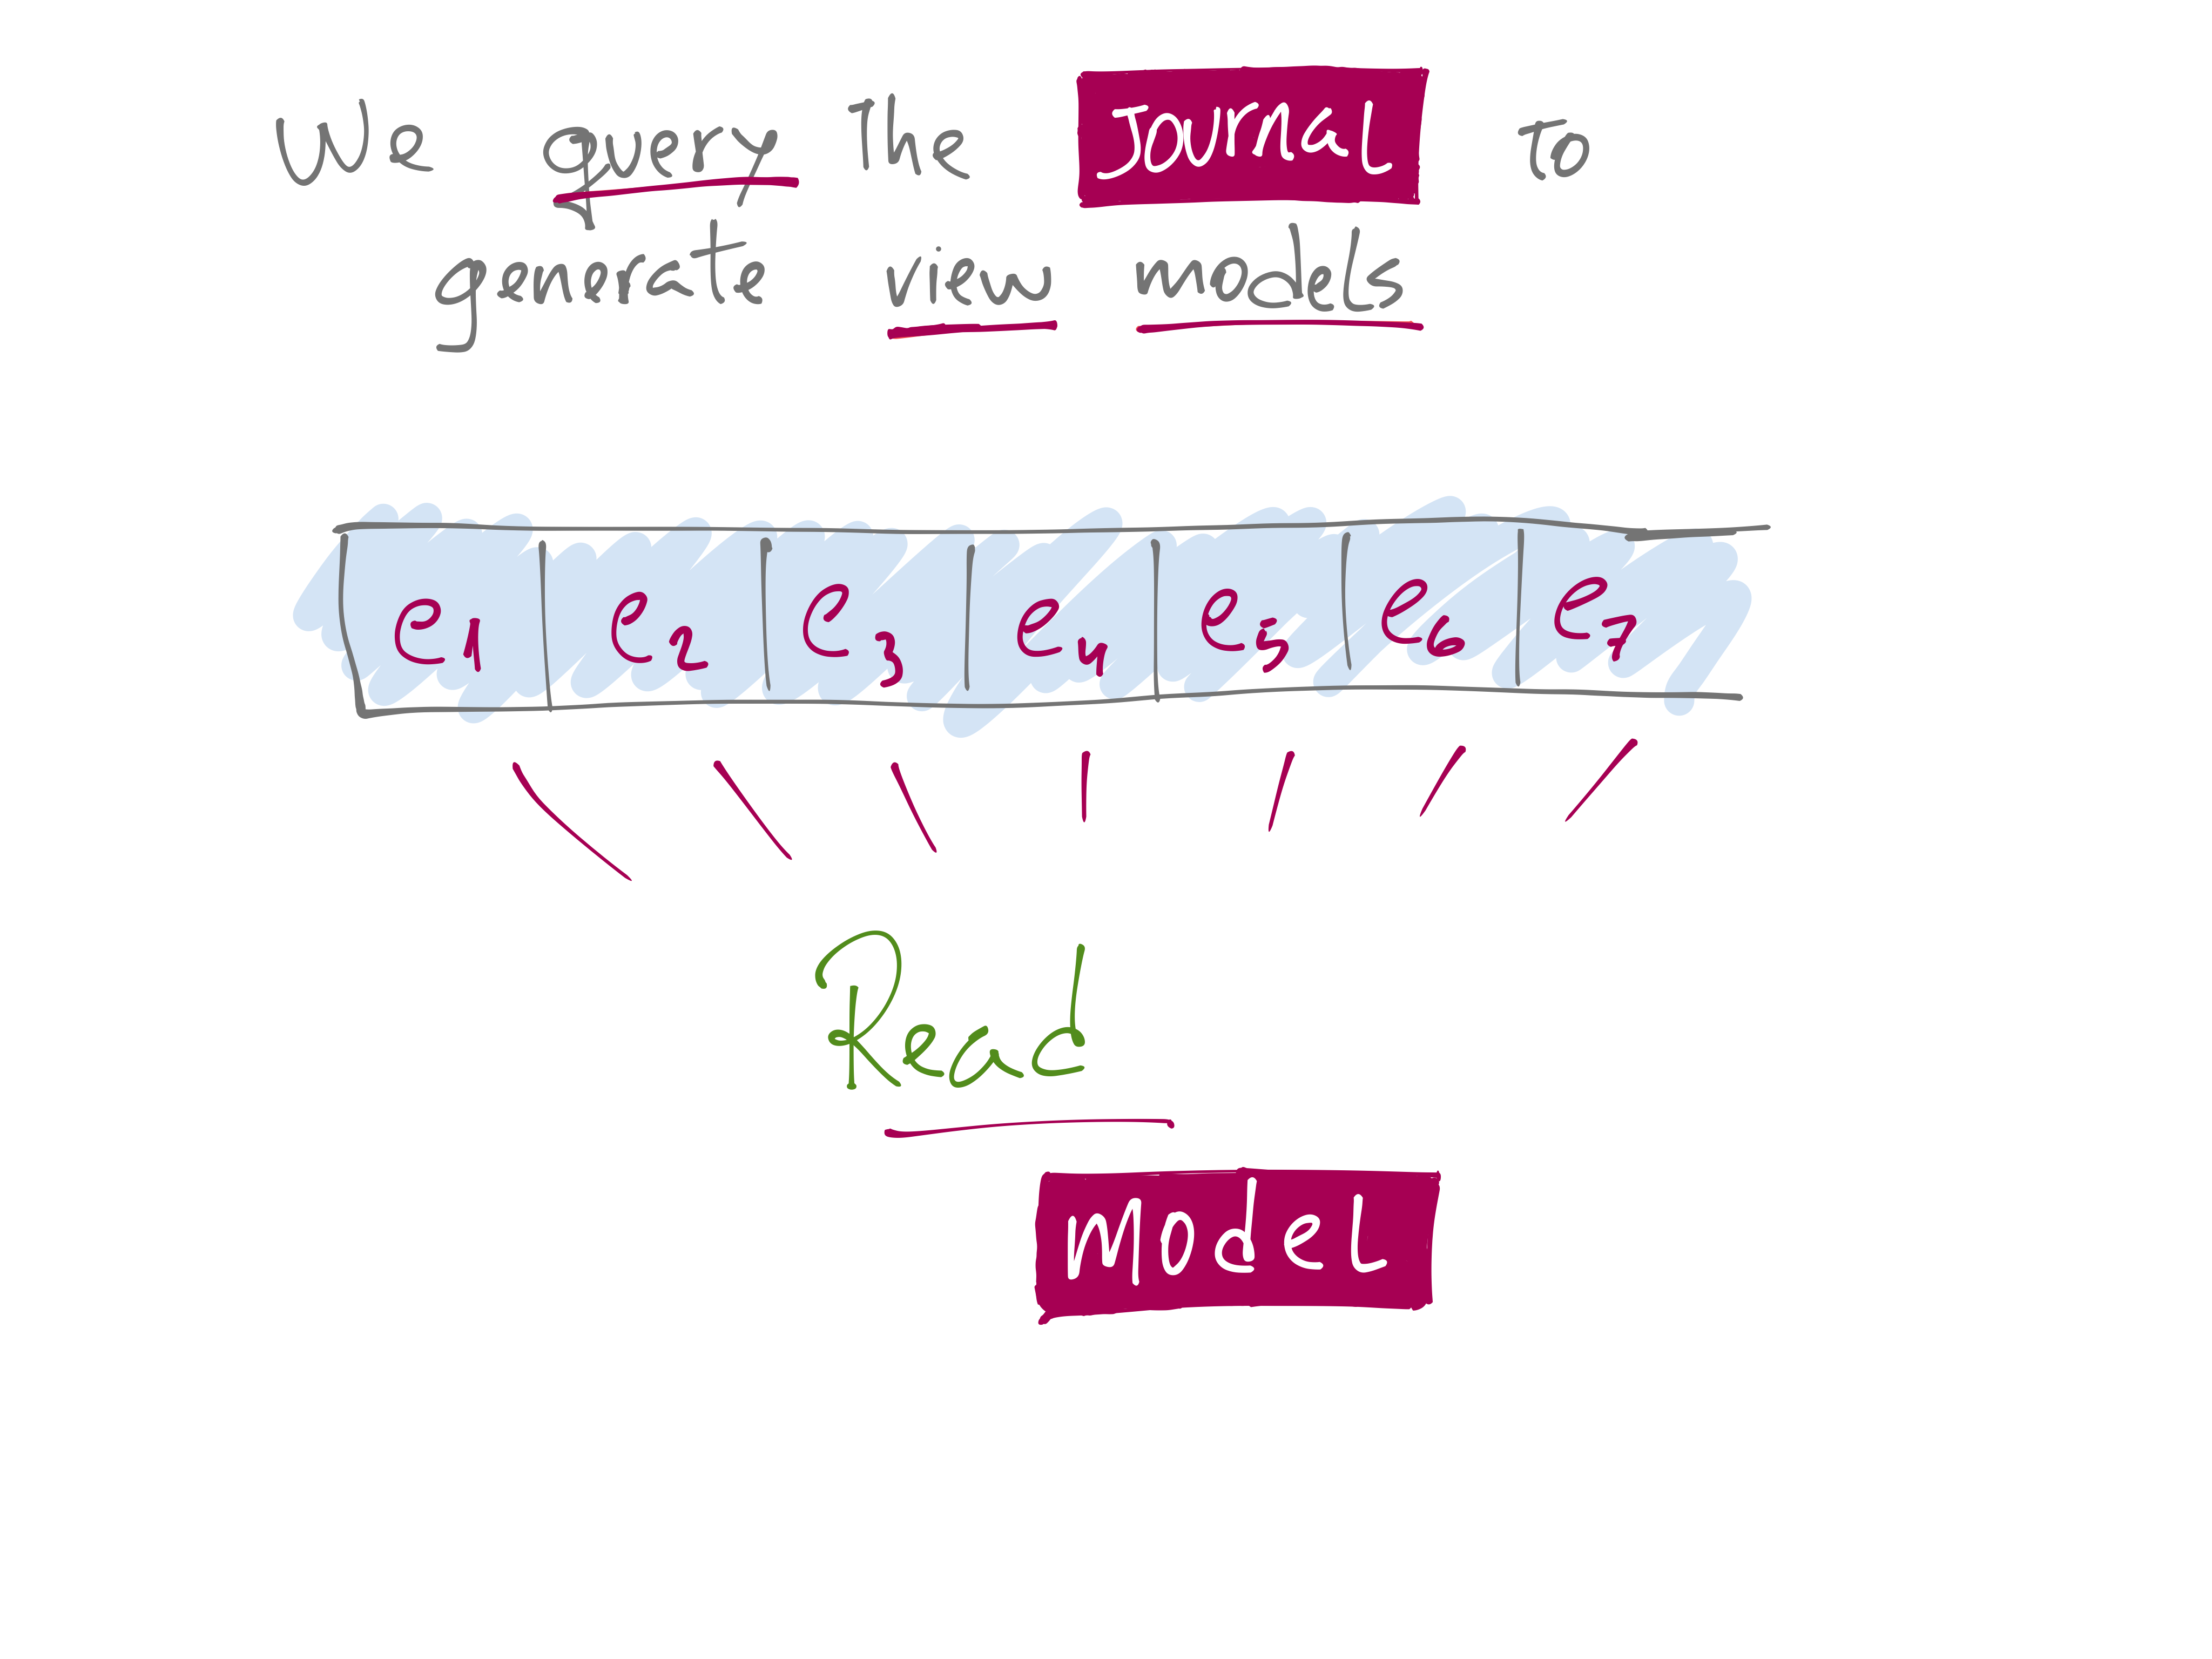 We query the Journal to
generate view models
e1 e2 e3 e4 e5 e6 e7
Read
Model